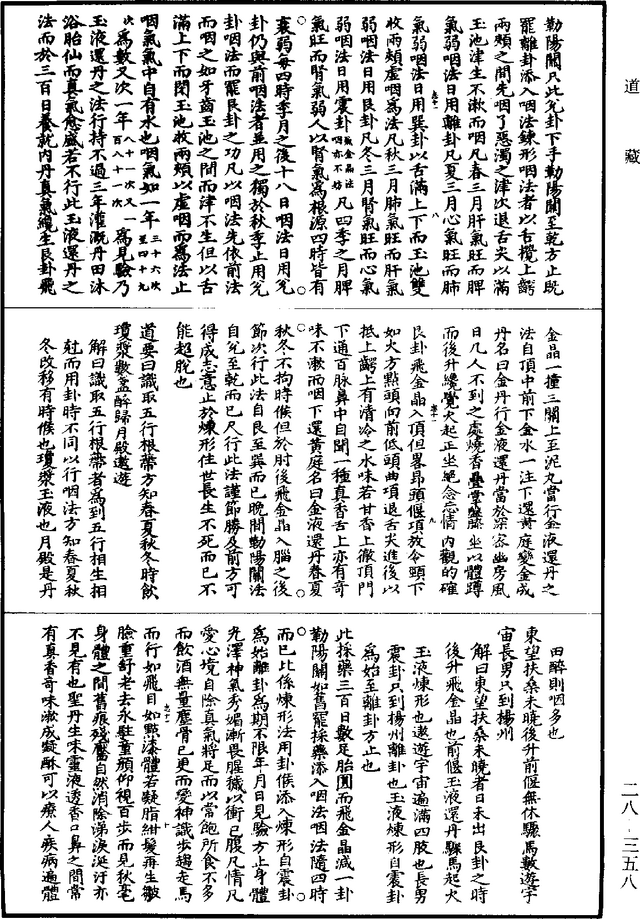 道藏
勒陽關只此兌卦下手勒陽關至乾方止既
罷離卦添入咽法鍊形咽法者以舌攪上齶
兩頰之間先咽了惡濁之津次退舌尖以滿
玉池津生不漱而咽凡春三月肝氣旺而脾
氣弱咽法日用離卦凡夏三月心氣旺而肺
氣弱咽法日用巽卦以舌滿上下而玉池雙
收兩頰虛咽為法凡秋三月肺氣旺而肝氣
弱咽法日用艮卦凡冬三月腎氣旺而心氣
弱咽法日用震卦凡四季之月脾
氣旺而腎氣弱人以腎氣為根源四時皆有
衰弱每四時季月之後十八日咽法日用兌
卦仍與前咽法者並用之獨於秋季止用兌
卦咽法而罷艮卦之功凡以咽法先依前法
而咽之如牙齒玉池之間而津不生但以舌
滿上下而閉玉池收兩頰以虛咽而為法止
咽氣氣中自有水也咽氣如一年三十六次至四十九
次為數又次一年八十一次又一百八十一次為見驗乃
玉液還丹之法行持不過三年灌溉丹田沐
浴胎仙而真氣愈盛若不行此玉液還丹之
法而於三百日養就內丹真氣纔生艮卦飛
金晶一撞三關上至泥丸當行金液還丹之
法自頂中前下金水一注下還黃庭變金成
丹名曰金丹行金液還丹當於深密幽房風
日凡人不到之處燒香疊掌盤膝坐以體蹲
而後升纔覺火起正坐絕念忘情內觀的確
艮卦飛金晶入頂但畧昂頭偃項放令頸下
如火方點頭向前低頭曲項退舌尖進後以
抵上齶上有清冷之水味若甘香上徹頂門
下通百脉鼻中自聞一種真香舌上亦有奇
味不漱而咽下還黃庭名曰金液還丹春夏
秋冬不拘時候但於肘後飛金晶入腦之後
節次行此法自艮至巽而已晚間勒陽關法
自兌至乾而已凡行此法謹節勝及前方可
得成志意止於煉形住世長生不死而已不
能超脫也
道要曰識取五行根蔕方知春夏秋冬時飲
瓊漿數盞醉歸月殿遨遊
解曰識取五行根蔕者為到五行相生相
尅而用卦時不同以行咽法方知春夏秋
冬改移有時候也瓊漿玉液也月殿是丹
田醉則咽多也
東望扶桑未曉後升前偃無休驟馬數遊宇
宙長男只到楊州
解曰東望扶桑未曉者日未出艮卦之時
後升飛金晶也前偃玉液還丹驟馬起火
玉液煉形也遨遊宇宙遍滿四肢也長男
震卦只到楊州離卦也玉液煉形自震卦
為始至離卦方止也
此採藥三百日數足胎圓而飛金晶減一卦
勒陽關如舊罷採藥添入咽法咽法隨四時
而已比係煉形法用卦候添入煉形自震卦
為始離卦為期不限年月日見驗方止身體
光澤神氣秀媚漸畏腥穢以衝已腹凡情凡
愛心境自除真氣將足而以常飽所食不多
而飲酒無量塵骨已更而變神識步趨走馬
而行如飛目如點漆體若凝脂紺髮再生皺
臉重舒老去永駐童顏仰視百步而見秋毫
身體之間舊痕殘靨自然消除涕淚涎汗亦
不見有也聖丹生味靈液透香口鼻之間常
有真香奇味漱成凝酥可以療人疾病遍體
二八・三五八